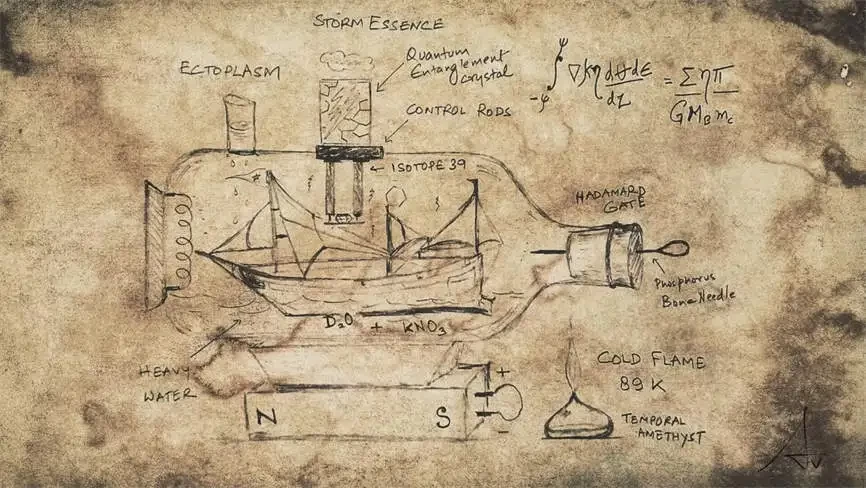 STORM ESSENCE
ECTOPLASM
Quantum
Entanglement
crystal
CONTROL RODS
ISOTOPE 39
-φ ∫ φ ∇kη dθdE / dZ = Σηπ / G M_B m_c
HADAMARD
GATE
Phosphorus
Bone Needle
D₂O + KNO₃
HEAVY
WATER
N S
+
-
COLD FLAME
89 K
TEMPORAL
AMETHYST